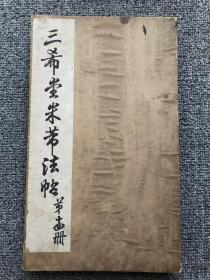 三希堂米芾法帖
第十四册